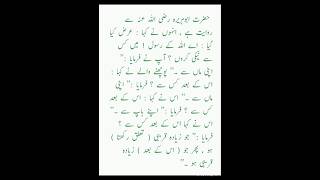 حضرت ابوہریرہ رضی اللہ عنہ سے
روایت ہے ، انہوں نے کہا : عرض کیا
گیا : اے اللہ کے رسول ! میں کس
سے نیکی کروں ؟ آپ نے فرمایا :"
اپنی ماں سے ۔" پوچھنے والے نے کہا :
اس کے بعد کس سے ؟ فرمایا :" اپنی
ماں سے ۔" اس نے کہا : اس کے بعد
کس سے ؟ فرمایا :" اپنے باپ سے ۔"
اس نے کہا اس کے بعد کس سے ؟
فرمایا :" جو زیادہ قریبی ( تعلق رکھتا )
ہو ، پھر جو ( اس کے بعد ) زیادہ
قریبی ہو ۔"